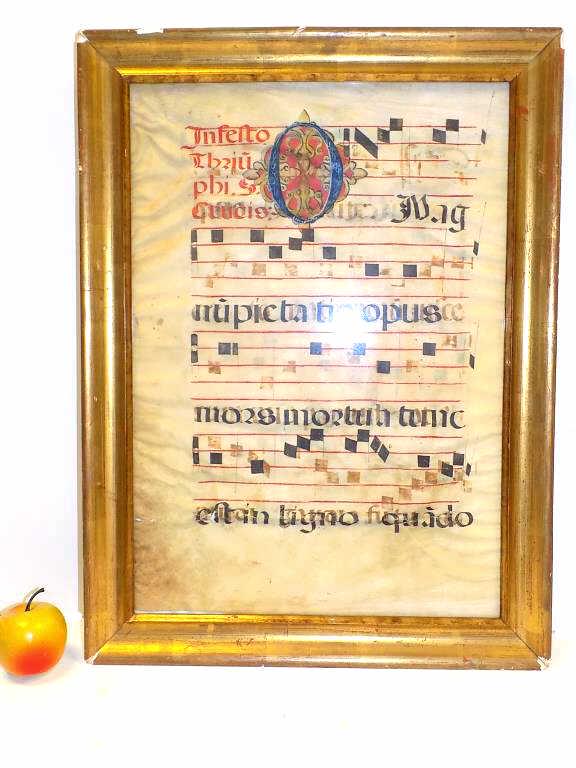 In festo
Triũ
phi. S.
Crucis. O Mag
nũ pietatis opus
mors mortua tunc
est in ligno quãdo